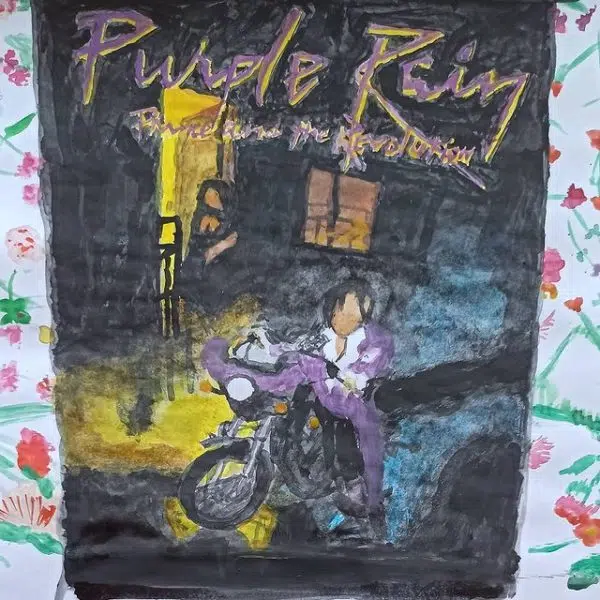 Purple Rain
Prince and the Revolution